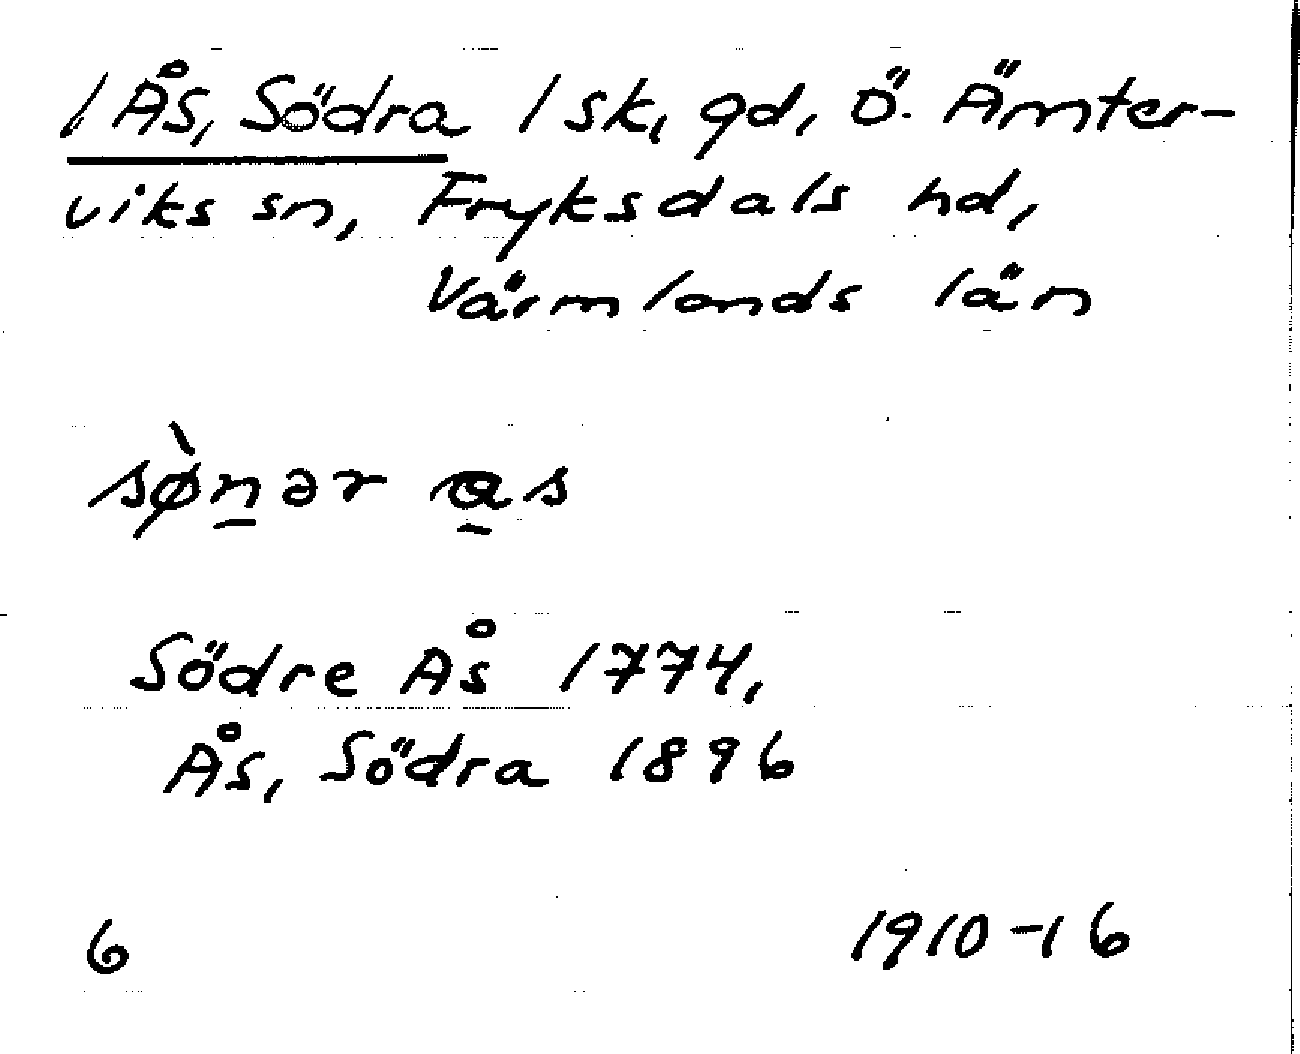 / Ås, Södra / sk, gd, Ö. Ämter-
viks sn, Fryksdals hd,
Värmlands län
sø̀n̲ər a̲s
Södre Ås 1774,
Ås, Södra 1896
6 1910-16